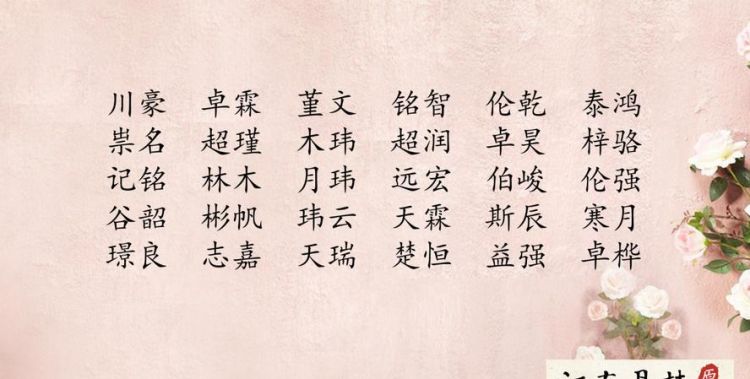 川豪 卓霖 堇文 铭智 伦乾 泰鸿
祟名 超瑾 木玮 超润 卓昊 梓骆
记铭 林木 月玮 远宏 伯峻 伦强
谷韶 彬帆 玮云 天霖 斯辰 寒月
璟良 志嘉 天瑞 楚恒 益强 卓桦